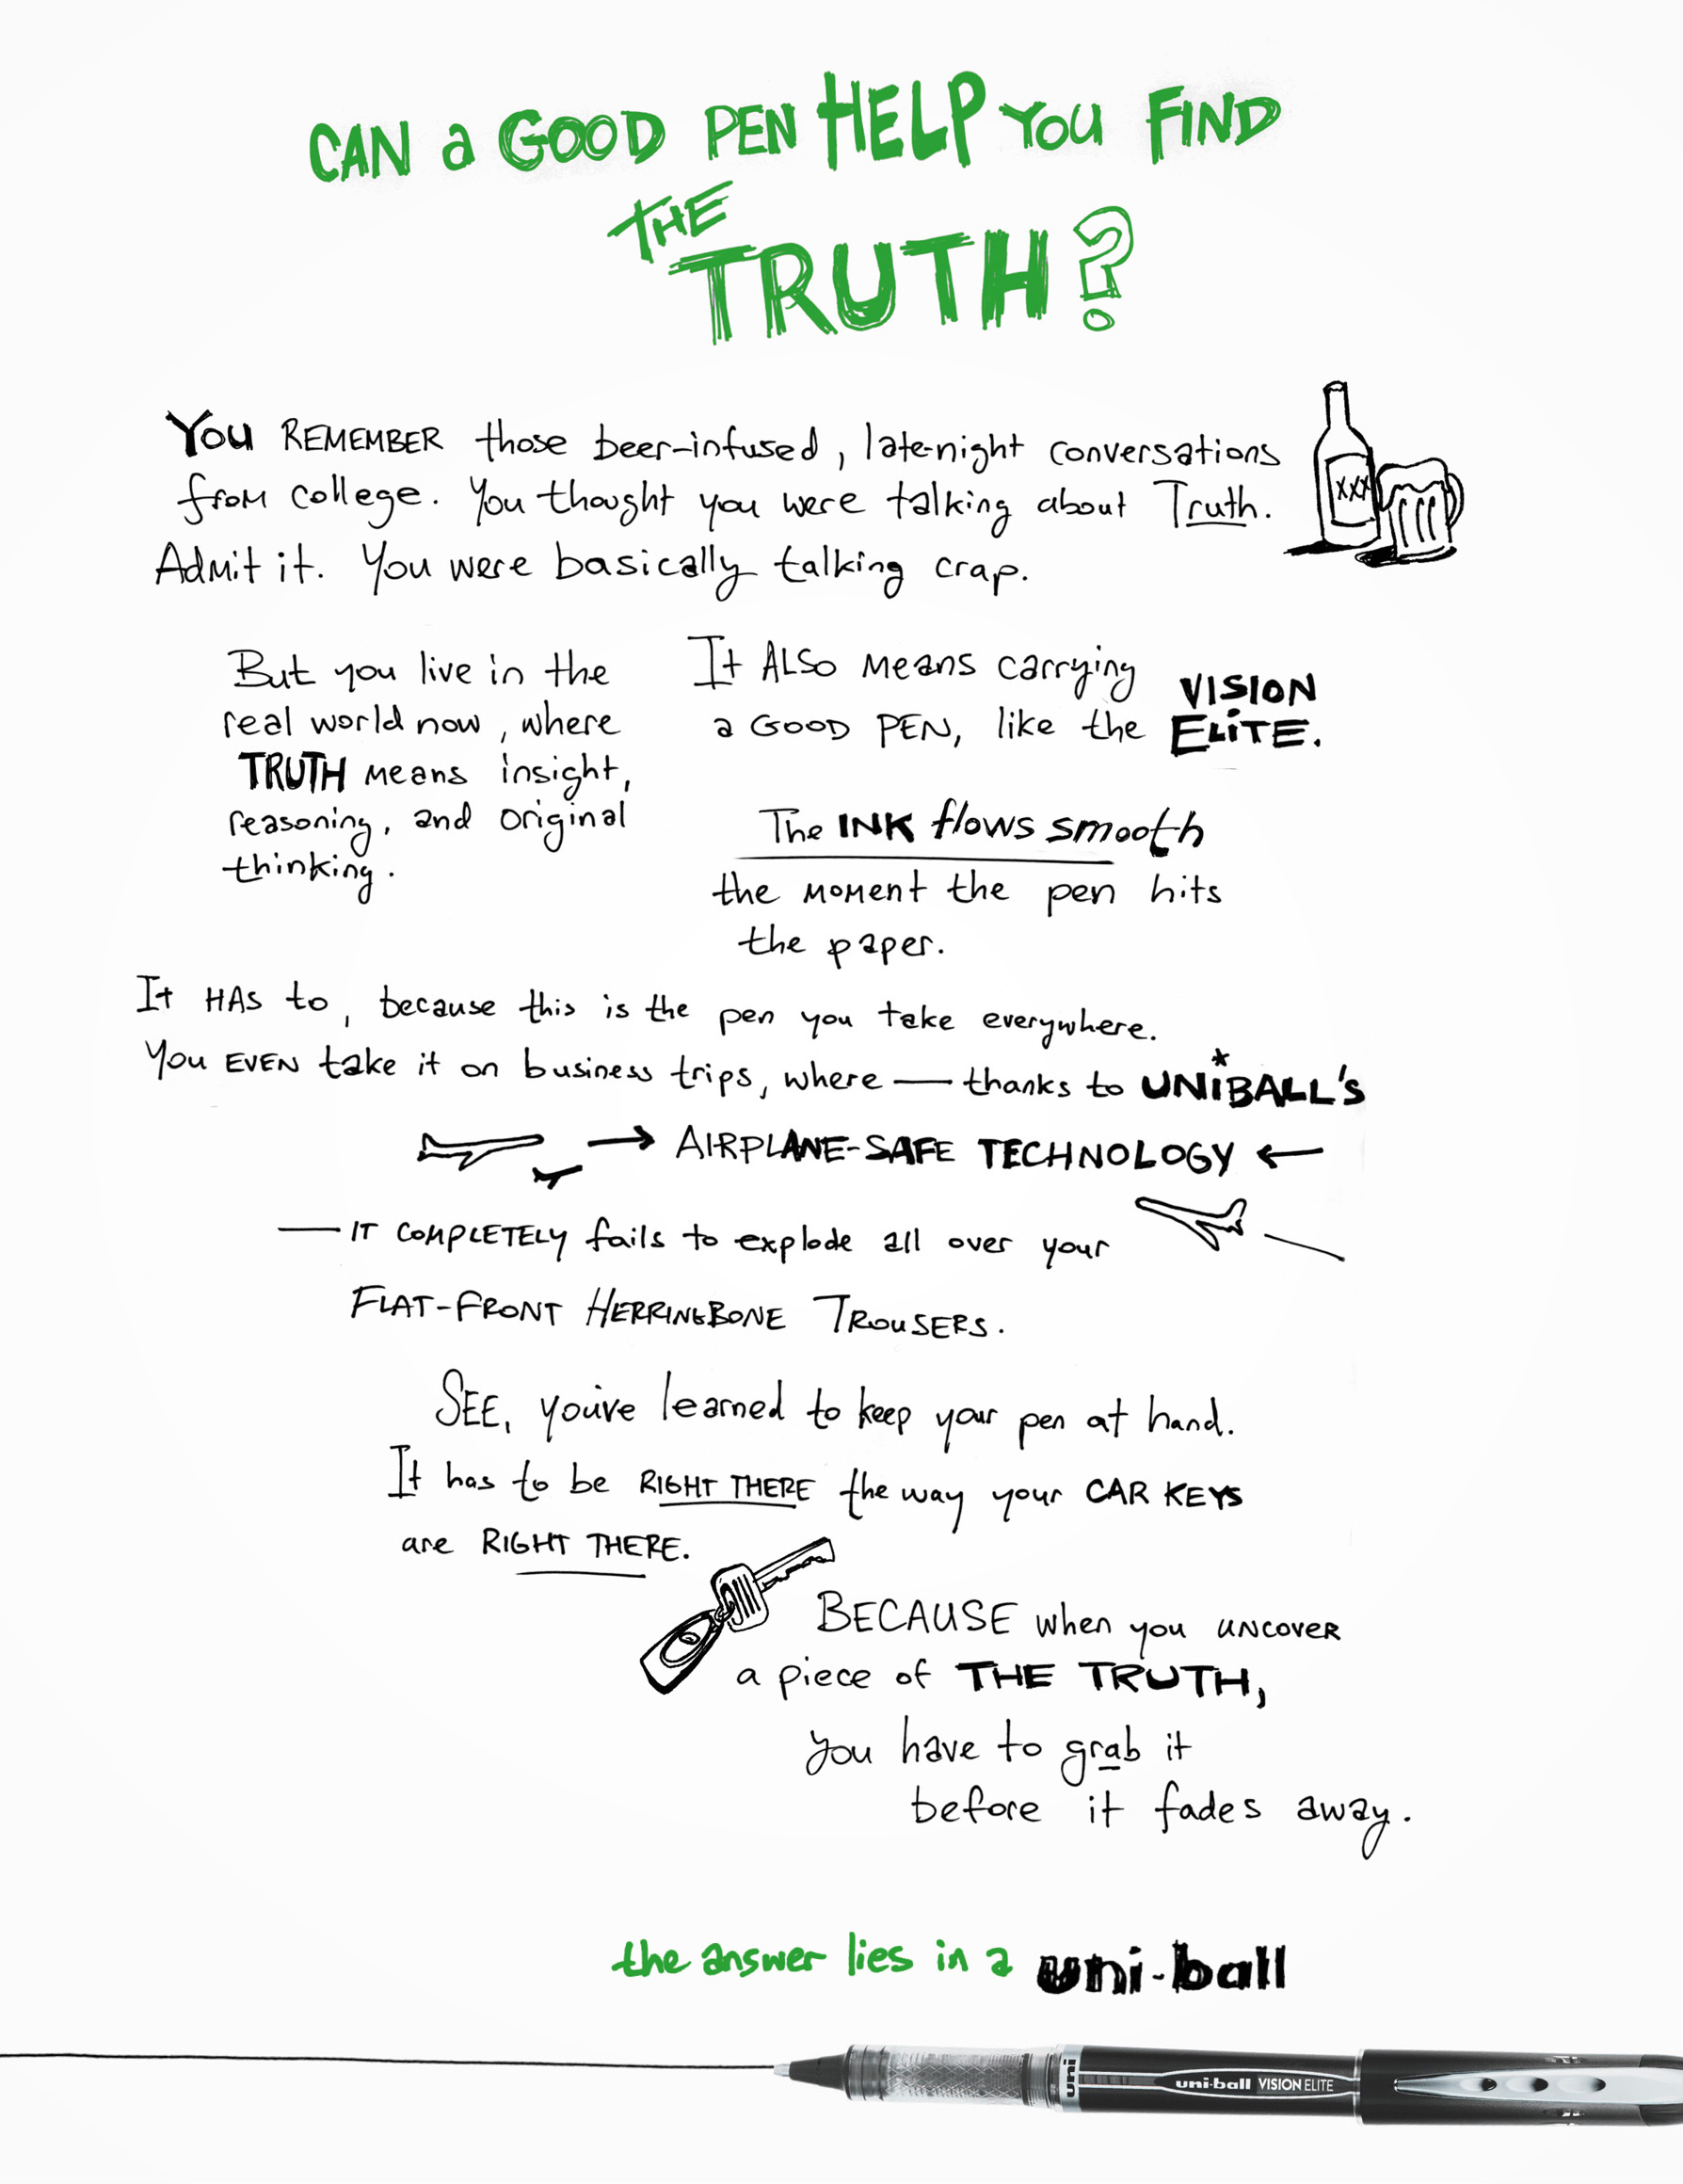 CAN a GOOD PEN HELP YOU FIND
THE
TRUTH?
YOU REMEMBER those beer-infused, late-night conversations
from college. You thought you were talking about Truth.
Admit it. You were basically talking crap.
XXX
But you live in the
real world now, where
TRUTH means insight,
reasoning, and original
thinking.
It ALSO means carrying
a GOOD PEN, like the VISION
ELITE.
The INK flows smooth
the moment the pen hits
the paper.
It HAS to, because this is the pen you take everywhere.
You EVEN take it on business trips, where — thanks to UNiBALL's
→ AIRPLANE-SAFE TECHNOLOGY ←
— IT COMPLETELY fails to explode all over your
FLAT-FRONT HERRINGBONE TROUSERS.
SEE, you've learned to keep your pen at hand.
It has to be RIGHT THERE the way your CAR KEYS
are RIGHT THERE.
BECAUSE when you UNCOVER
a piece of THE TRUTH,
you have to grab it
before it fades away.
the answer lies in a uni-ball
uni
uni-ball VISION ELITE